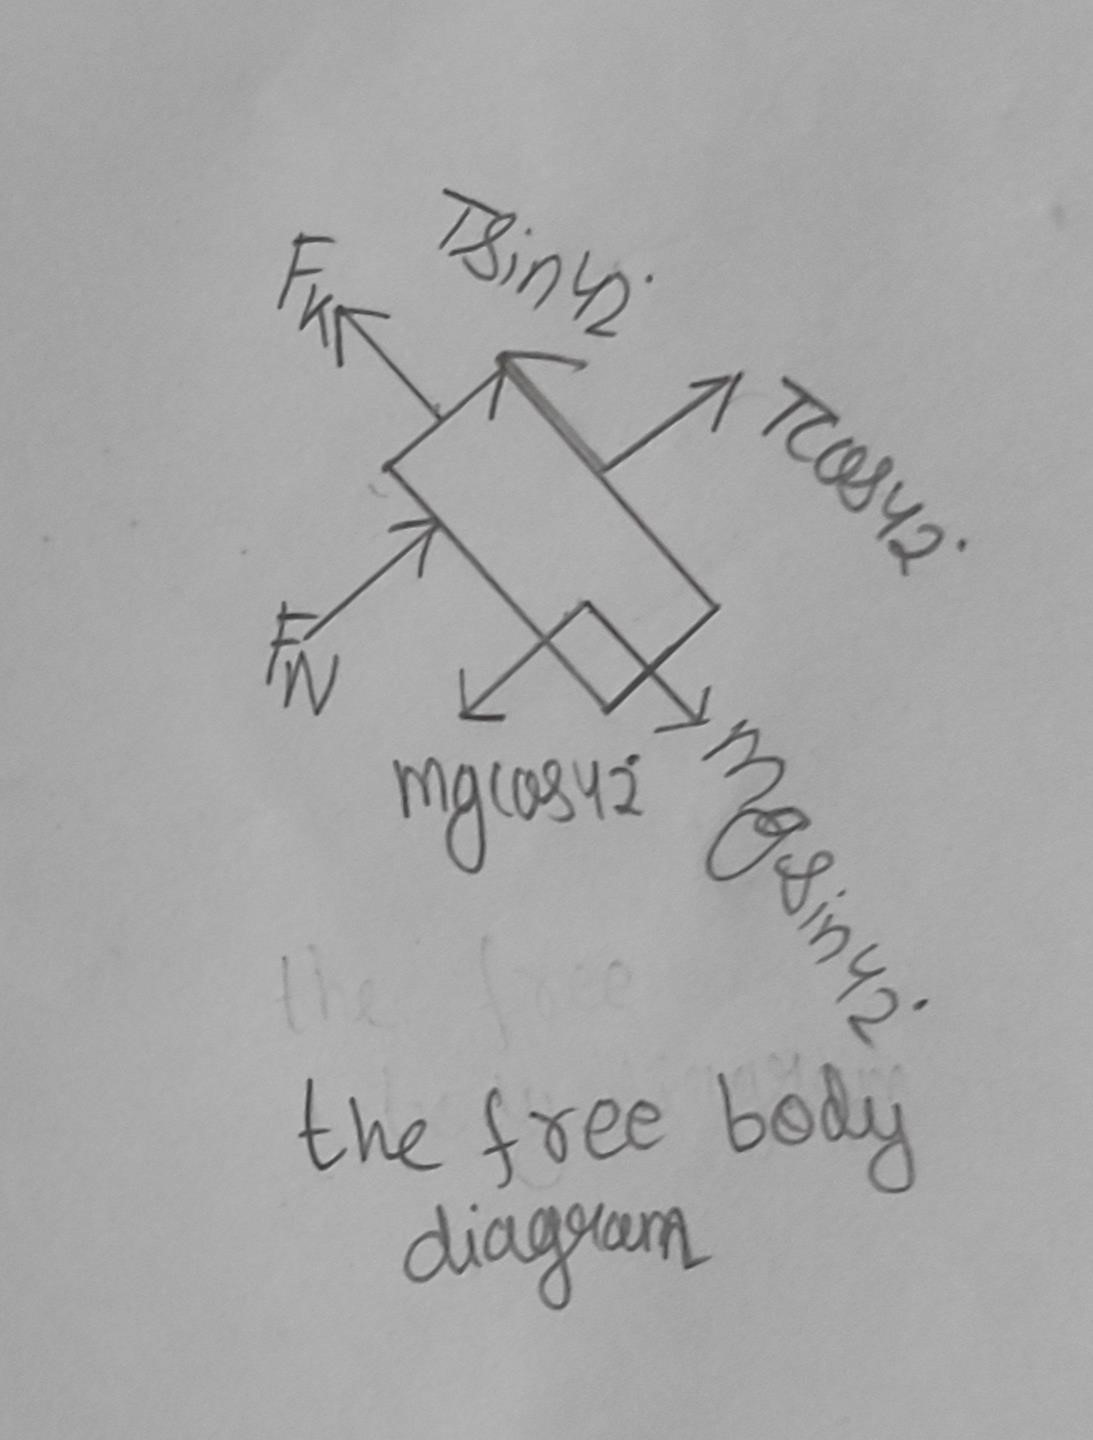 Tsin42°
F_K
Tcos42°
F_N
mgcos42°
mgsin42°
the free
the free body
diagram